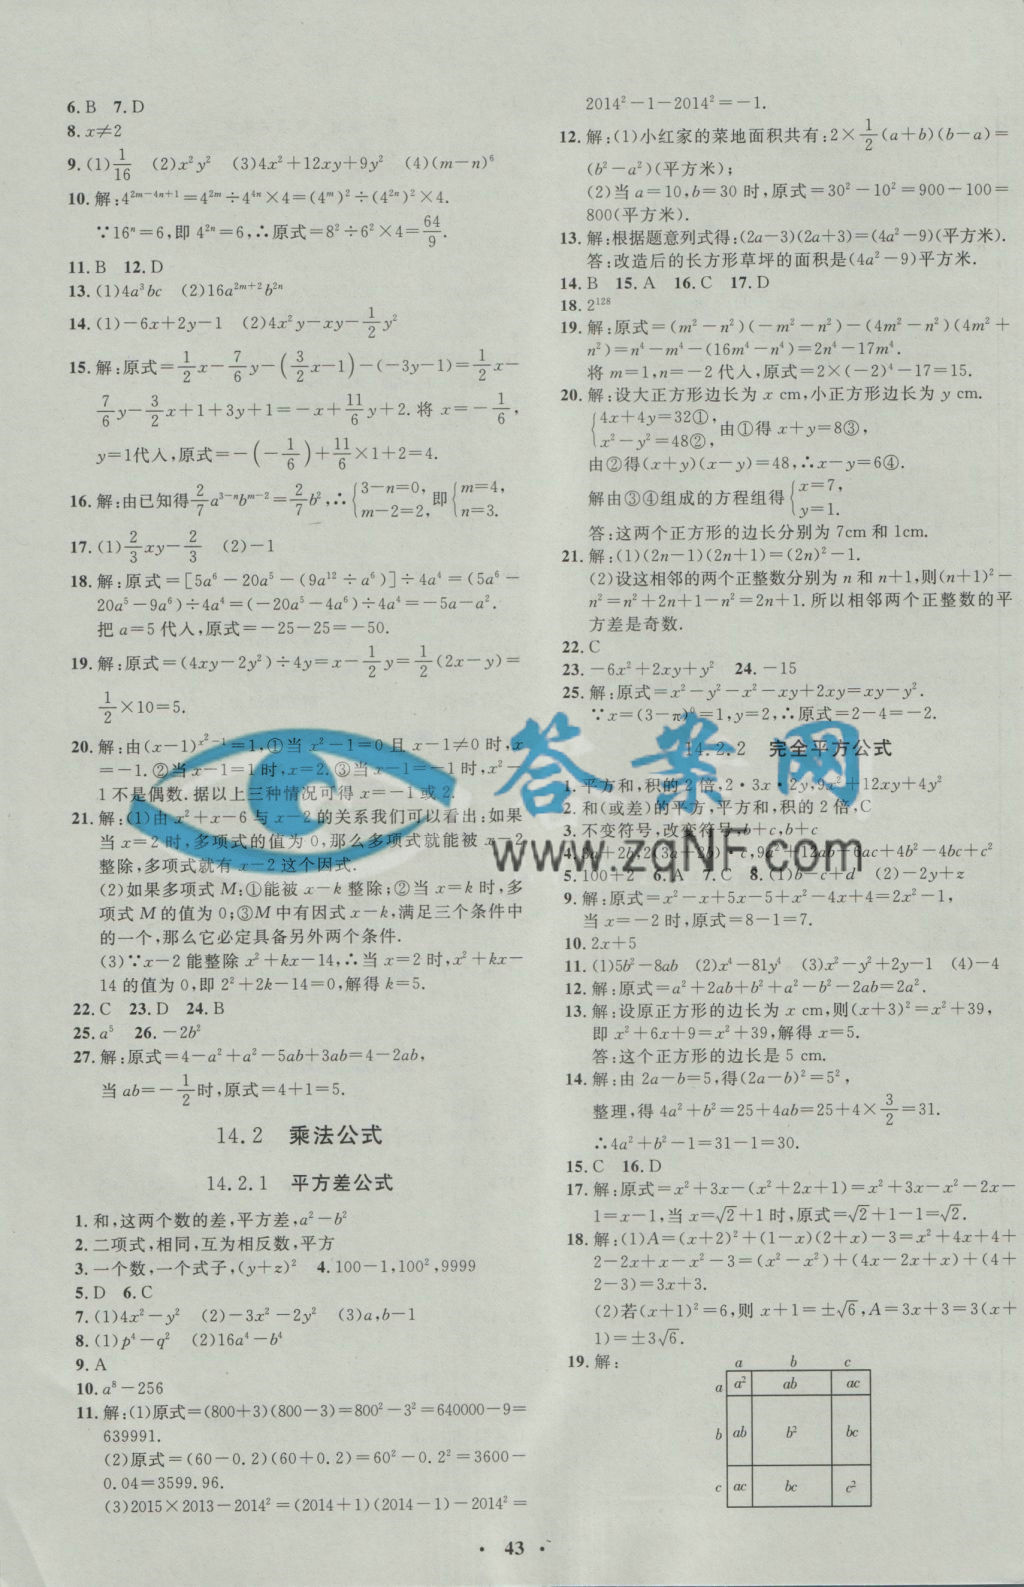 6. B 7. D
8. x≠2
9. (1)1/16 (2)x²y² (3)4x²+12xy+9y² (4)(m-n)⁶
10. 解:4^(2m-4n+1)=4^(2m)÷4^(4n)×4=(4^m)²÷(4^(2n))²×4.
∵16ⁿ=6,即4^(2n)=6,∴原式=8²÷6²×4=64/9.
11. B 12. D
13. (1)4a³bc (2)16a^(2m+2)b^(2n)
14. (1)-6x+2y-1 (2)4x²y-xy-1/2y²
15. 解:原式=1/2x-7/6y-(3/2x-1)-(-3y-1)=1/2x-
7/6y-3/2x+1+3y+1=-x+11/6y+2. 将x=-1/6,
y=1代入,原式=-(-1/6)+11/6×1+2=4.
16. 解:由已知得2/7a^(3-n)b^(m-2)=2/7b²,∴{3-n=0, m-2=2, 即{m=4, n=3.
17. (1)2/3xy-2/3 (2)-1
18. 解:原式=[5a⁶-20a⁵-(9a¹²÷a⁶)]÷4a⁴=(5a⁶-
20a⁵-9a⁶)÷4a⁴=(-20a⁵-4a⁶)÷4a⁴=-5a-a².
把a=5代入,原式=-25-25=-50.
19. 解:原式=(4xy-2y²)÷4y=x-1/2y=1/2(2x-y)=
1/2×10=5.
20. 解:由(x-1)^(x²-1)=1,①当x²-1=0且x-1≠0时,x
=-1. ②当x-1=1时,x=2. ③当x-1=-1时,x²-
1不是偶数. 据以上三种情况可得x=-1或2.
21. 解:(1)由x²+x-6与x-2的关系我们可以看出:如果
当x=2时,多项式的值为0,那么多项式就能被x-2
整除,多项式就有x-2这个因式.
(2)如果多项式M;①能被x-k整除;②当x=k时,多
项式M的值为0;③M中有因式x-k,满足三个条件中
的一个,那么它必定具备另外两个条件.
(3)∵x-2能整除x²+kx-14,∴当x=2时,x²+kx-
14的值为0,即2²+2k-14=0,解得k=5.
22. C 23. D 24. B
25. a⁵ 26. -2b²
27. 解:原式=4-a²+a²-5ab+3ab=4-2ab,
当ab=-1/2时,原式=4+1=5.
14.2 乘法公式
14.2.1 平方差公式
1. 和,这两个数的差,平方差,a²-b²
2. 二项式,相同,互为相反数,平方
3. 一个数,一个式子,(y+z)² 4. 100-1,100²,9999
5. D 6. C
7. (1)4x²-y² (2)-3x²-2y² (3)a,b-1
8. (1)p⁴-q² (2)16a⁴-b⁴
9. A
10. a⁸-256
11. 解:(1)原式=(800+3)(800-3)=800²-3²=640000-9=
639991.
(2)原式=(60-0.2)(60+0.2)=60²-0.2²=3600-
0.04=3599.96.
(3)2015×2013-2014²=(2014+1)(2014-1)-2014²=
2014²-1-2014²=-1.
12. 解:(1)小红家的菜地面积共有:2×1/2(a+b)(b-a)=
(b²-a²)(平方米);
(2)当a=10,b=30时,原式=30²-10²=900-100=
800(平方米).
13. 解:根据题意列式得:(2a-3)(2a+3)=(4a²-9)(平方米).
答:改造后的长方形草坪的面积是(4a²-9)平方米.
14. B 15. A 16. C 17. D
18. 2¹²⁸
19. 解:原式=(m²-n²)(-m²-n²)-(4m²-n²)(4m²+
n²)=n⁴-m⁴-(16m⁴-n⁴)=2n⁴-17m⁴.
将m=1,n=-2代入,原式=2×(-2)⁴-17=15.
20. 解:设大正方形边长为x cm,小正方形边长为y cm.
{4x+4y=32①, x²-y²=48②, 由①得x+y=8③,
由②得(x+y)(x-y)=48,∴x-y=6④.
解由③④组成的方程组得{x=7, y=1.
答:这两个正方形的边长分别为7cm和1cm.
21. 解:(1)(2n-1)(2n+1)=(2n)²-1.
(2)设这相邻的两个正整数分别为n和n+1,则(n+1)²-
n²=n²+2n+1-n²=2n+1. 所以相邻两个正整数的平
方差是奇数.
22. C
23. -6x²+2xy+y² 24. -15
25. 解:原式=x²-y²-x²-xy+2xy=xy-y².
∵x=(3-π)⁰=1,y=2,∴原式=2-4=-2.
14.2.2 完全平方公式
1. 平方和,积的2倍,2·3x·2y,9x²+12xy+4y²
2. 和(或差)的平方,平方和,积的2倍,C
3. 不变符号,改变符号,b+c,b+c
4. 3a+2b,2(3a+2b)·c,9a²+12ab+6ac+4b²-4bc+c²
5. 100+2 6. A 7. C 8. (1)b-c+d (2)-2y+z
9. 解:原式=x²-x+5x-5+x²-4x+4=2x²-1,
当x=-2时,原式=8-1=7.
10. 2x+5
11. (1)5b²-8ab (2)x⁴-81y⁴ (3)x²-y²+2y-1 (4)-4
12. 解:原式=a²+2ab+b²+a²-b²-2ab=2a².
13. 解:设原正方形的边长为x cm,则(x+3)²=x²+39,
即x²+6x+9=x²+39,解得x=5.
答:这个正方形的边长是5 cm.
14. 解:由2a-b=5,得(2a-b)²=5²,
整理,得4a²+b²=25+4ab=25+4×3/2=31.
∴4a²+b²-1=31-1=30.
15. C 16. D
17. 解:原式=x²+3x-(x²+2x+1)=x²+3x-x²-2x-
1=x-1,当x=√2+1时,原式=√2+1-1=√2.
18. 解:(1)A=(x+2)²+(1-x)(2+x)-3=x²+4x+4+
2-2x+x-x²-3=(x²-x²)+(4x-2x+x)+(4+
2-3)=3x+3.
(2)若(x+1)²=6,则x+1=±√6,A=3x+3=3(x+
1)=±3√6.
19. 解:
a b c
a a² ab ac
b ab b² bc
c ac bc c²
· 43 ·
答案网
www.zqNF.com